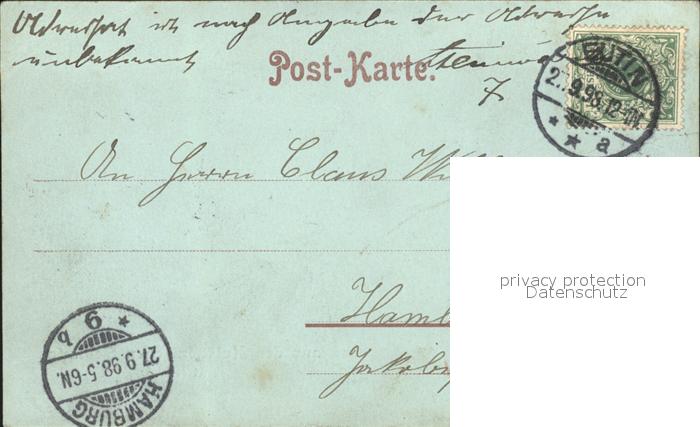 Adressat ist nach Angabe der Adresse
unbekannt
Post-Karte.
7
EUTIN
27.9.98.12-1N.
* * a
An Herrn Claus
privacy protection
Datenschutz
Hamb
Jakob
HAMBURG
27.9.98.5-6N.
* 6 q